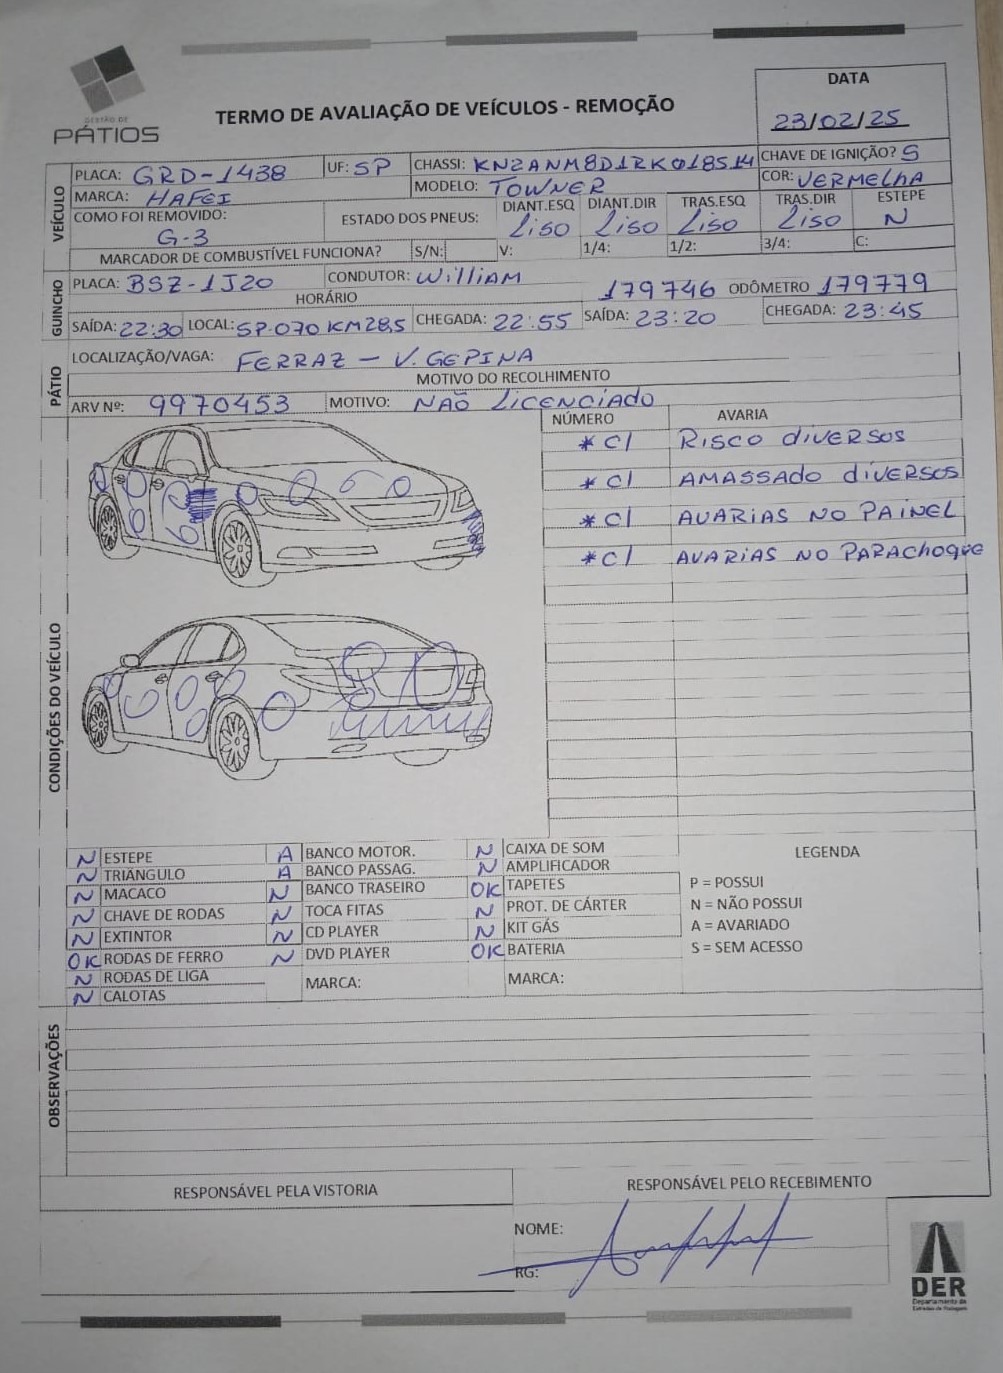 GESTÃO DE
PÁTIOS
TERMO DE AVALIAÇÃO DE VEÍCULOS - REMOÇÃO
DATA
23/02/25
VEÍCULO
PLACA: GRD-1438 UF: SP CHASSI: KNZANM8D1RK018514 CHAVE DE IGNIÇÃO? S
MARCA: HAFEI MODELO: TOWNER COR: VERMELHA
COMO FOI REMOVIDO: G-3 ESTADO DOS PNEUS: DIANT.ESQ LISO DIANT.DIR LISO TRAS.ESQ LISO TRAS.DIR LISO ESTEPE N
MARCADOR DE COMBUSTÍVEL FUNCIONA? S/N: V: 1/4: 1/2: 3/4: C:
GUINCHO
PLACA: BSZ-1J20 CONDUTOR: WilliAM 179746 ODÔMETRO 179779
HORÁRIO
SAÍDA: 22:30 LOCAL: SP-070 KM28,5 CHEGADA: 22:55 SAÍDA: 23:20 CHEGADA: 23:45
PÁTIO
LOCALIZAÇÃO/VAGA: FERRAZ - V. GEPINA
MOTIVO DO RECOLHIMENTO
ARV Nº: 9970453 MOTIVO: NAO LICENCIADO
CONDIÇÕES DO VEÍCULO
NÚMERO AVARIA
* C/ RISCO diVERSOS
* C/ AMASSADO diVERSOS
* C/ AVARIAS NO PAINEL
* C/ AVARIAS NO PARAChoque
N ESTEPE A BANCO MOTOR. N CAIXA DE SOM LEGENDA
N TRIÂNGULO A BANCO PASSAG. N AMPLIFICADOR
N MACACO N BANCO TRASEIRO OK TAPETES P = POSSUI
N CHAVE DE RODAS N TOCA FITAS N PROT. DE CÁRTER N = NÃO POSSUI
N EXTINTOR N CD PLAYER N KIT GÁS A = AVARIADO
OK RODAS DE FERRO N DVD PLAYER OK BATERIA S = SEM ACESSO
N RODAS DE LIGA MARCA: MARCA:
N CALOTAS
OBSERVAÇÕES
RESPONSÁVEL PELA VISTORIA RESPONSÁVEL PELO RECEBIMENTO
NOME:
RG:
DER
Departamento de
Estradas de Rodagem